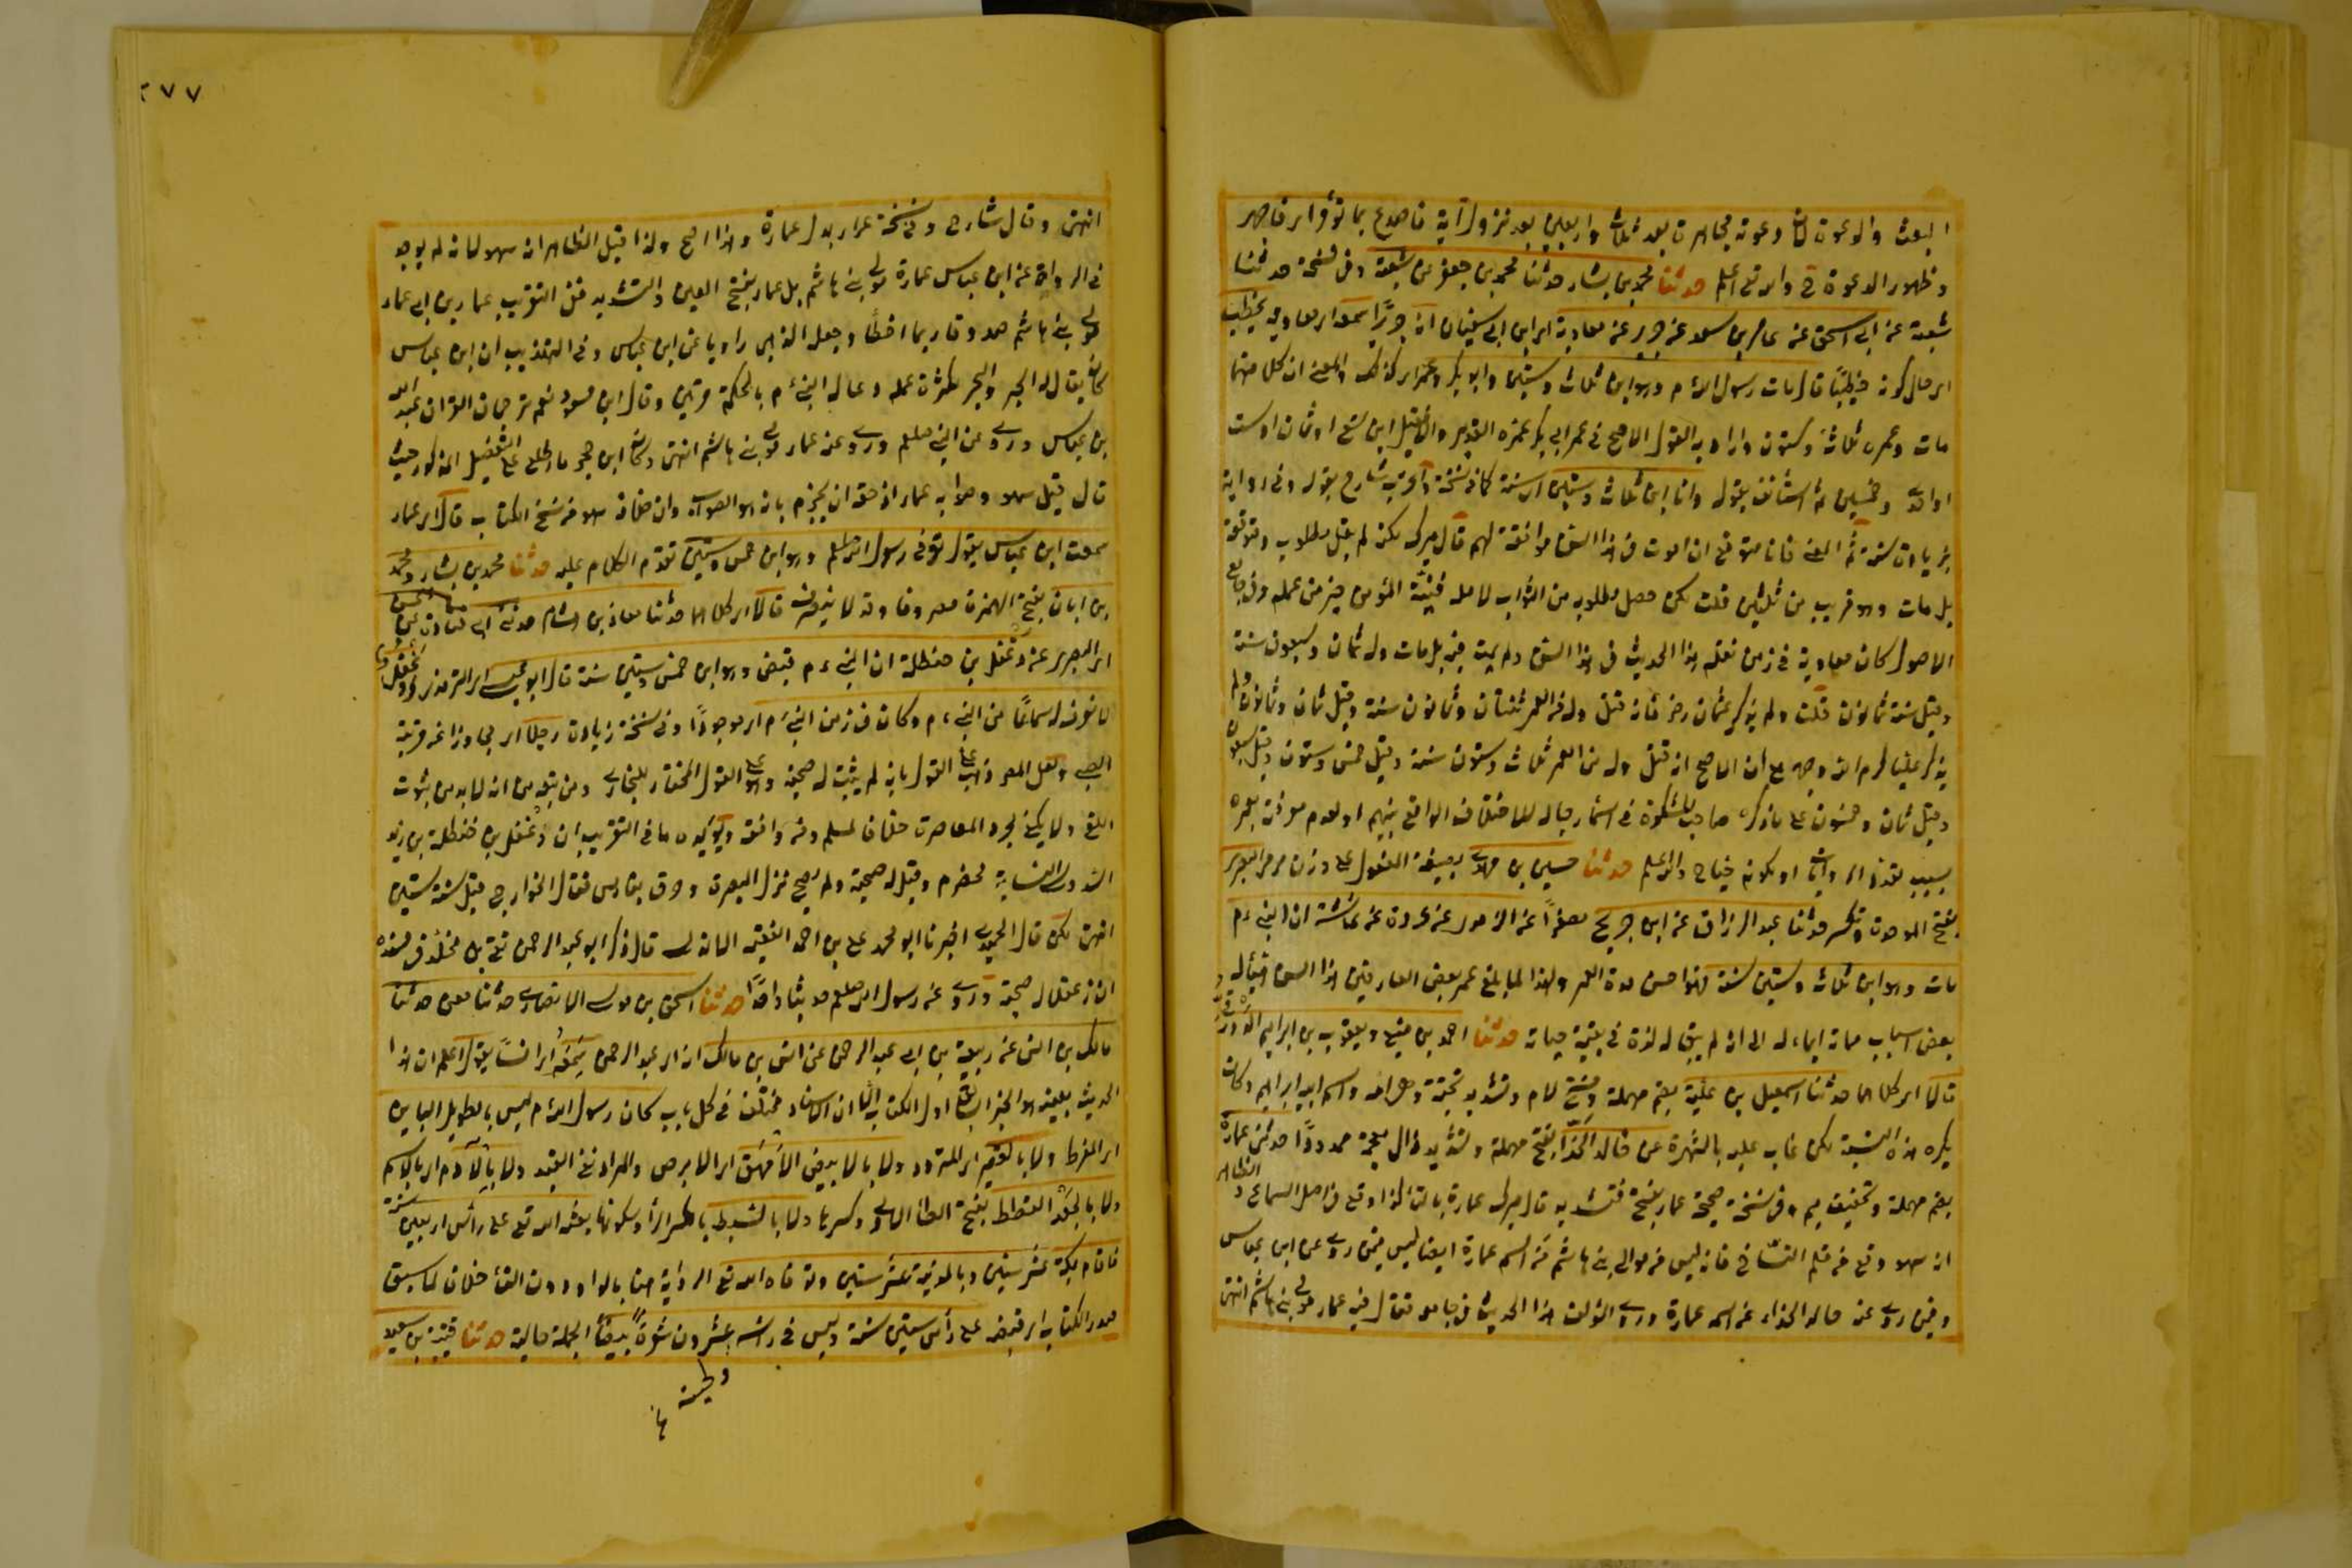 البعث والدعوة كان دعوته مجاهرة بعد ثلاث واربعين بعد نزول آية فاصدع بما تؤمر اى فاجهر
وظهور الدعوة والله تعالى اعلم حدثنا محمد بن بشار حدثنا محمد بن جعفر عن شعبة وفى نسخة حدثنا
شعبة عن ابى اسحق عن عامر بن سعد عن جرير عن معاوية اى ابن ابى سفيان ان جريرًا سمعه اى معاوية يخطب
اى حال كونه خطيبًا قال مات رسول الله م وهو ابن ثلاث وستين وابو بكر وعمر اى كذلك والمعنى ان كل منهما
مات وعمره ثلاث وستون واراد به القول الاصح فى عمر ابى بكر وعمر والا فقيل ابن تسع او ثمان او ست
او احدى وخمسين ثم استأنف بقوله وانا ابن ثلاث وستين اى سنة كما فى نسخة شارح بقوله وفى رواية
بزيادة سنة ثم المعنى فانا متوقع ان اموت فى هذا السن موافقة لهم قال ميرك لكن لم ينل مطلوبه ومتوقعه
بل مات وهو قريب من ثمانين قلت لكن حصل مطلوبه من الثواب لامله فنية المؤمن خير من عمله وفى جامع
الاصول كان معاوية فى زمن نقله هذا الحديث فى هذا السن ولم يمت فيه بل مات وله ثمان وسبعون سنة
وقيل ستة ثمانون قلت ولم يذكر عثمان رضى فانه قتل وله من العمر ثنتان وثمانون سنة وقيل ثمان وثمانون ولم
يذكر عليا كرم الله وجهه مع ان الاصح انه قتل وله من العمر ثلاث وستون سنة وقيل خمس وستون وقيل سبعون
وقيل ثمان وخمسون على ما ذكره صاحب المشكوة فى اسماء رجاله للاختلاف الواقع بينهم او لعدم معرفة بعمره
بسبب تعدد الروايات او لكونه حياح والله اعلم حدثنا حسين بن مهدى بصيغة المفعول على وزن مرمى البصرى
بفتح الموحدة وتكسر حدثنا عبد الرزاق عن ابن جريج مصغرًا عن الزهرى عن عروة عن عائشة ان النبى م
مات وهو ابن ثلاث وستين سنة فهذا حسن مدة العمر ولهذا لما بلغ عمر بعض العارفين هذا السن هيأ له
بعض اسباب مماته ايماء له الى انه لم يبق له لذة فى بقية حياته حدثنا احمد بن منيع ويعقوب بن ابراهيم الدورقى
قالا اى كلاهما حدثنا اسمعيل بن علية بضم مهملة وفتح لام وتشديد تحتية وهى امه واسم ابيه ابراهيم وكان
يكره هذه النسبة لكن غلب عليه بالشهرة عن خالد الحذّاء بفتح مهملة وتشديد ذال معجمة ممدودًا حدثنى عمارة
بضم مهملة وتخفيف ميم وفى نسخة صحيحة عمار بفتح فتشديد قال ميرك عمارة بالتاء كذا وقع فى اصل السماع والظاهر
انه سهو وقع من قلم النسّاخ فانه ليس فى موالى بنى هاشم من اسمه عمارة ايضا ليس فيمن روى عن ابن عباس
وفيمن روى عنه خالد الحذاء من اسمه عمارة وروى المؤلف هذا الحديث فى جامعه فقال فيه عمار مولى بنى هاشم انتهى
٢٧٧
انتهى وقال شارح وفى نسخة عمار بدل عمارة وهذا اصح ولذا قيل الظاهر انه سهو لانه لم يوجد
فى الرواة عن ابن عباس عمارة مولى بنى هاشم بل عمار بفتح العين والتشديد ففى التقريب عمار بن ابى عمار
مولى بنى هاشم صدوق ربما اخطأ وجعل الذهبى راويا عن ابن عباس وفى التهذيب ان ابن عباس
كان يقال له الحبر والبحر لكثرة علمه ودعا له النبى م بالحكمة مرتين وقال ابن مسعود نعم ترجمان القرآن عبد الله
بن عباس وروى عن النبى صلعم وروى عنه عمار مولى بنى هاشم انتهى وكان ابن حجر ما اطلع على التفصيل المذكور حيث
قال قيل سهو وصوابه عمار اذ حقه ان يجزم بانه هو الصواب وان خلافه سهو من نسخ الكتاب قال اى عمار
سمعت ابن عباس يقول توفى رسول الله صلعم وهو ابن خمس وستين تقدم الكلام عليه حدثنا محمد بن بشار ومحمد
بن ابان بفتح الهمزة مصروفا وقد لا ينصرف قالا اى كلاهما حدثنا معاذ بن هشام حدثنى ابى عن قتادة عن الحسن
اى البصرى عن دغفل بن حنظلة ان النبى م قبض وهو ابن خمس وستين سنة قال ابو عيسى اى الترمذى ودغفل
لا نعرف له سماعًا من النبى م وكان فى زمن النبى م اى موجودًا وفى نسخة زيادة رجلا اى مجاوزا عن مرتبة
الصبى ولعل المص ذهب الى القول بانه لم يثبت له صحبة وهو على القول المختار للبخارى ومن تبعه من انه لا بد من ثبوت
اللقى ولا يكفى مجرد المعاصرة خلافا لمسلم ومن وافقه ويؤيده ما فى التقريب ان دغفل بن حنظلة بن زيد
السدوسى النسابة مخضرم وقيل له صحبة ولم يصح نزل البصرة وغرق بفارس فى قتال الخوارج قبل سنة ستين
انتهى لكن قال الحميدى اخبرنا ابو محمد على بن احمد الفقيه الاندلسى قال ذكر ابو عبد الرحمن بقى بن مخلد فى مسنده
ان دغفلا له صحبة وروى عن رسول الله صلعم حديثا واحدًا حدثنا اسحق بن موسى الانصارى حدثنا معن حدثنا
مالك بن انس عن ربيعة بن ابى عبد الرحمن عن انس بن مالك انه اى عبد الرحمن سمعه اى انسًا يقول اعلم ان هذا
الحديث بعينه هو الخبر السابق اول الكتاب الا ان الاسناد مختلف فى كل باب كان رسول الله م ليس بالطويل البائن
اى المفرط ولا بالقصير اى المتردد ولا بالابيض الامهق اى الابرص والمراد نفى القيد ولا بالآدم اى بالاسمر
ولا بالجعد القطط بفتح الطاء الاولى وكسرها ولا بالسبط بكسر الباء وسكونها بعثه الله تع على رأس اربعين سنة
فاقام بمكة عشر سنين وبالمدينة عشر سنين وتوفاه الله تع الرواية هنا بالواو دون الفاء خلاف لما سبق
صدر الكتاب اى قبضه على رأس ستين سنة وليس فى رأسه عشرون شعرة بيضاء الجملة حالية حدثنا قتيبة بن سعيد
ولحيته